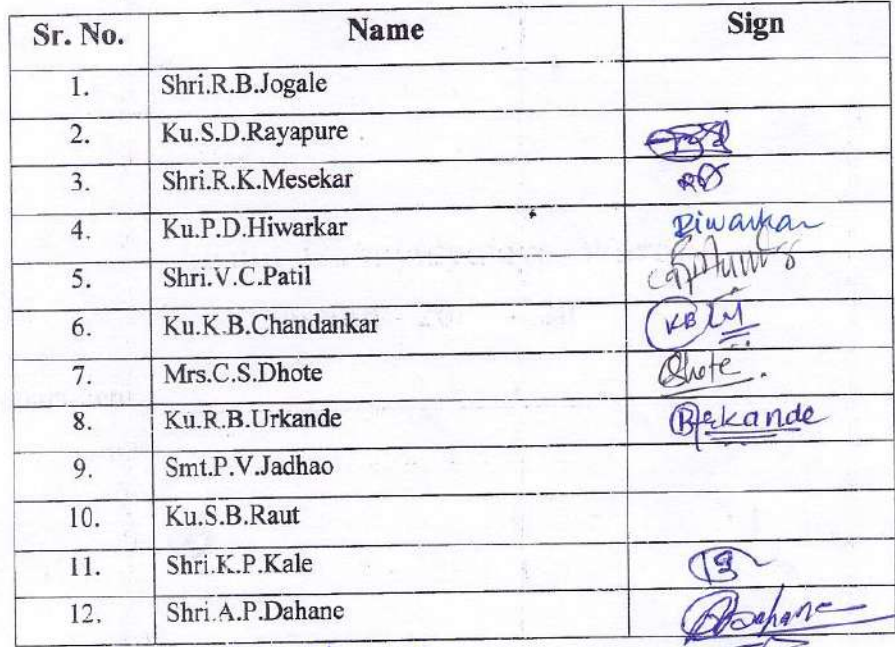 Sr. No. Name Sign
1. Shri.R.B.Jogale
2. Ku.S.D.Rayapure
3. Shri.R.K.Mesekar
4. Ku.P.D.Hiwarkar
5. Shri.V.C.Patil
6. Ku.K.B.Chandankar KB
7. Mrs.C.S.Dhote Dhote.
8. Ku.R.B.Urkande
9. Smt.P.V.Jadhao
10. Ku.S.B.Raut
11. Shri.K.P.Kale
12. Shri.A.P.Dahane Dahane